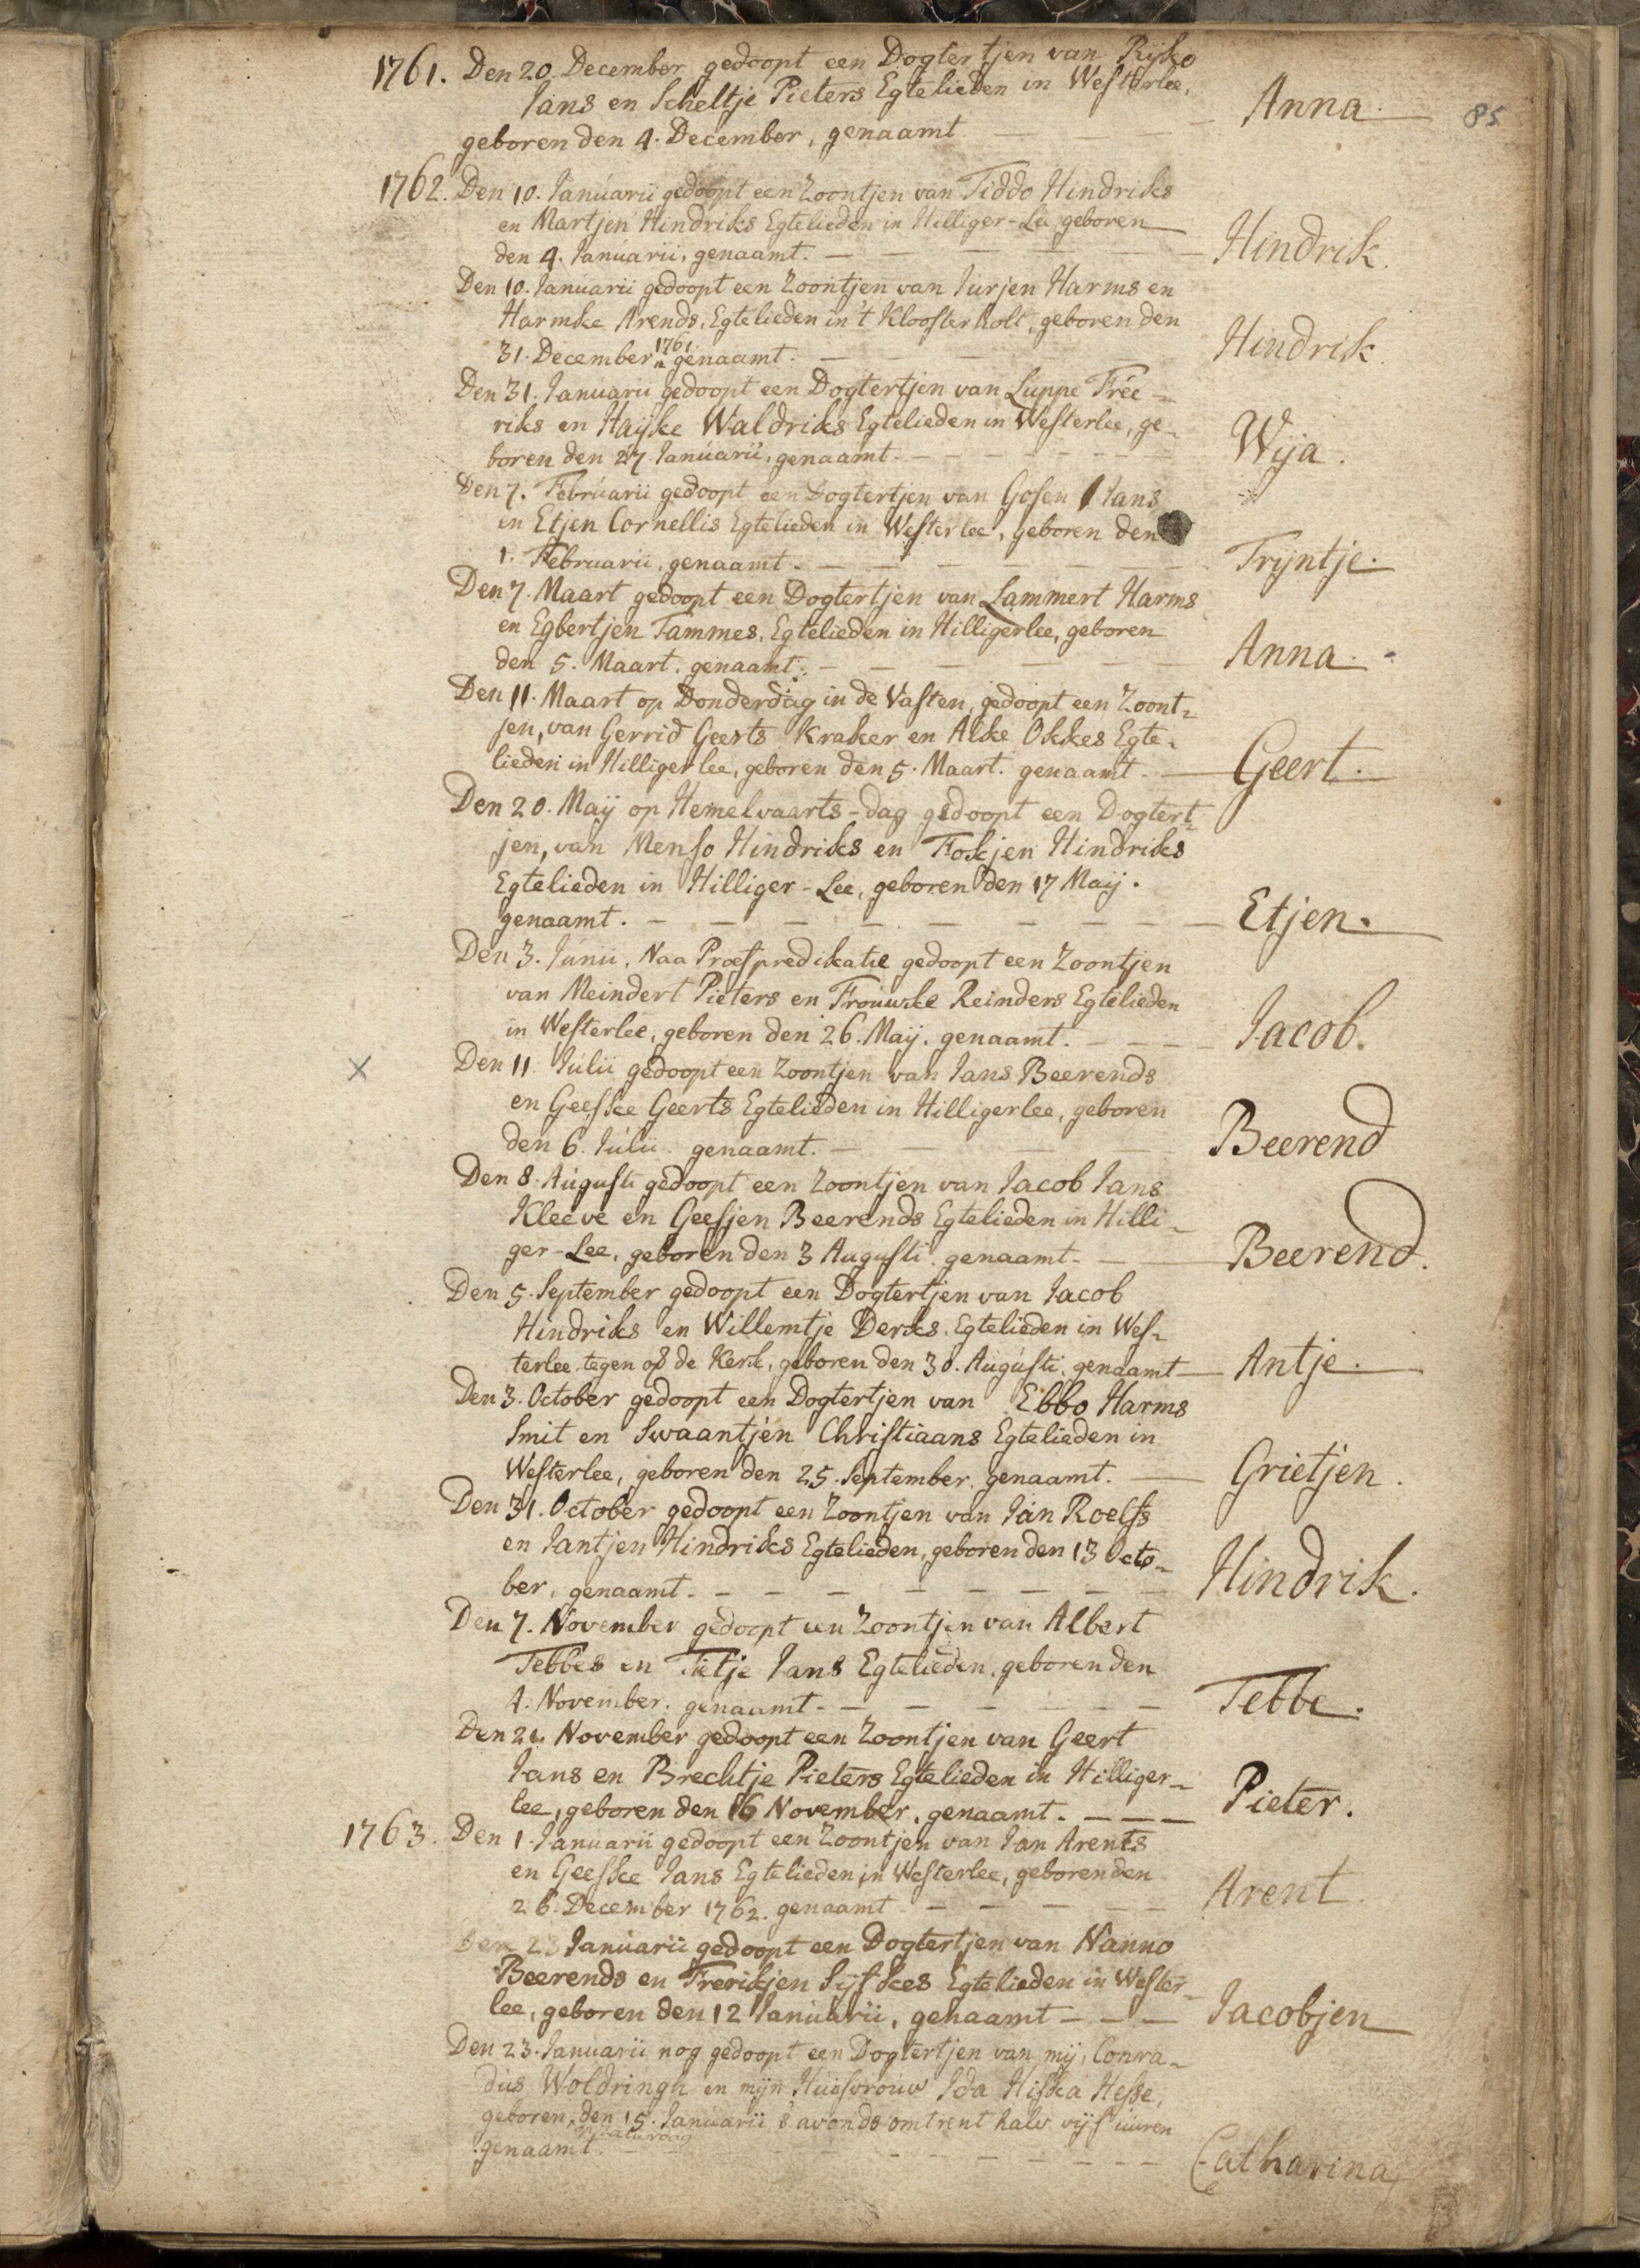 85
1761. Den 20. December gedoopt een Dogtertjen van Rijko
Jans en Scheltje Pieters Egtelieden in Westerlee,
geboren den 4. December, genaamt — — — Anna.
1762. Den 10. Januarii gedoopt een Zoontjen van Tiddo Hindriks
en Martjen Hindriks Egtelieden in Hilliger-Lee geboren
den 4. Januarii, genaamt. — — — Hindrik.
Den 10. Januarii gedoopt een Zoontjen van Jurjen Harms en
Harmke Arends, Egtelieden in 't Kloosterholt, geboren den
31. December 1761. genaamt. — — — Hindrik
Den 31. Januarii gedoopt een Dogtertjen van Luppe Free-
riks en Haijke Waldriks Egtelieden in Westerlee, ge-
boren den 27. Januarii, genaamt. — — — Wija.
Den 7. Februarii gedoopt een Dogtertjen van Gosen Jans
en Etjen Cornellis Egtelieden in Westerlee, geboren den
1. Februarii, genaamt. — — — Trijntje.
Den 7. Maart gedoopt een Dogtertjen van Lammert Harms
en Egbertjen Tammes, Egtelieden in Hilligerlee, geboren
den 5. Maart, genaamt. — — — Anna.
Den 11. Maart op Donderdag in de Vasten, gedoopt een Zoont-
jen, van Gerrid Geerts Kraker en Alke Okkes Egte-
lieden in Hilligerlee, geboren den 5. Maart. genaamt. — Geert.
Den 20. Maij op Hemelvaarts-dag gedoopt een Dogtert-
jen, van Menso Hindriks en Fokjen Hindriks
Egtelieden in Hilliger-Lee, geboren den 17 Maij.
genaamt. — — — Etjen.
Den 3. Junii, Naa Proefpredikatie gedoopt een Zoontjen
van Meindert Pieters en Frouwke Reinders Egtelieden
in Westerlee, geboren den 26. Maij. genaamt. — — — Jacob.
Den 11 Julii gedoopt een Zoontjen van Jans Beerends
en Geeske Geerts Egtelieden in Hilligerlee, geboren
den 6. Julii. genaamt. — — — Beerend
Den 8. Augusti gedoopt een Zoontjen van Jacob Jans
Kleeve en Geesjen Beerends Egtelieden in Hilli-
ger-Lee, geboren den 3 Augusti. genaamt. — Beerend.
Den 5. September gedoopt een Dogtertjen van Jacob
Hindriks en Willemtje Derks, Egtelieden in Wes-
terlee tegen of de Kerk, geboren den 30. Augusti. genaamt — Antje.
Den 3. October gedoopt een Dogtertjen van Ebbo Harms
Smit en Swaantjen Christiaans Egtelieden in
Westerlee, geboren den 25. September, genaamt. — Grietjen.
Den 31. October gedoopt een Zoontjen van Jan Roelfs
en Jantjen Hindriks Egtelieden, geboren den 13 Octo-
ber, genaamt. — — — Hindrik.
Den 7. November gedoopt een Zoontjen van Albert
Tebbes en Tietje Jans Egtelieden, geboren den
4. November. genaamt. — — — Tebbe.
Den 21. November gedoopt een Zoontjen van Geert
Jans en Brechtje Pieters Egtelieden in Hilliger-
lee, geboren den 16 November, genaamt. — — — Pieter.
1763. Den 1. Januarii gedoopt een Zoontjen van Jan Arents
en Geeske Jans Egtelieden in Westerlee, geboren den
26. December 1762. genaamt — — — Arent.
Den 23 Januarii gedoopt een Dogtertjen van Nanno
Beerends en Frerikjen Sijskes Egtelieden in Wester-
lee, geboren den 12 Januarii, genaamt — — — Jacobjen
Den 23. Januarii nog gedoopt een Dogtertjen van mij, Conra-
dus Woldringh en mijn Huisvrouw Ida Hiska Hesse,
geboren den 15. Januarii 's avonds omtrent halv vijf uuren
genaamt. — — — Catharina